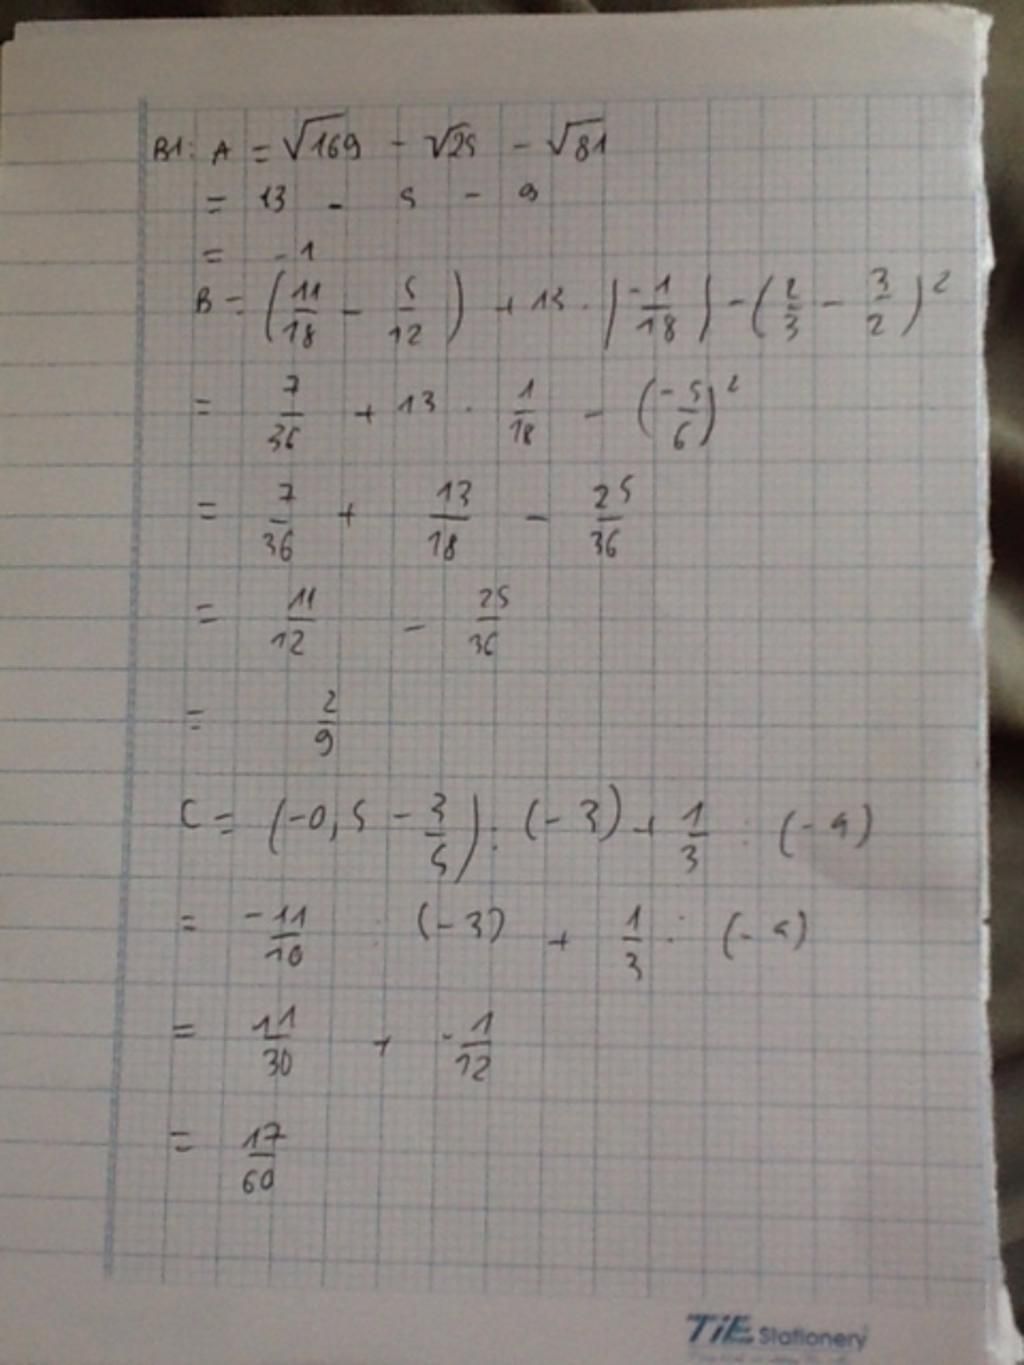 B1: A = √169 - √25 - √81
= 13 - 5 - 9
= -1
B = (11/18 - 5/12) + 13 . |-1/18| - (2/3 - 3/2)²
= 7/36 + 13 . 1/18 - (-5/6)²
= 7/36 + 13/18 - 25/36
= 11/12 - 25/36
= 2/9
C = (-0,5 - 3/5) : (-3) + 1/3 : (-4)
= -11/10 : (-3) + 1/3 : (-4)
= 11/30 + -1/12
= 17/60
TiE Stationery